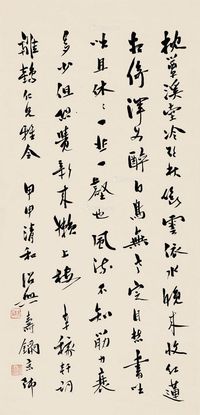 枕簟溪堂冷欲秋斷雲依水晚來收紅蓮
相倚渾如醉白鳥無言定自愁書咄
咄且休休一丘一壑也風流不知筋力衰
多少但覺新來懶上樓 辛稼軒詞
鶴仁兄雅令 甲申清和